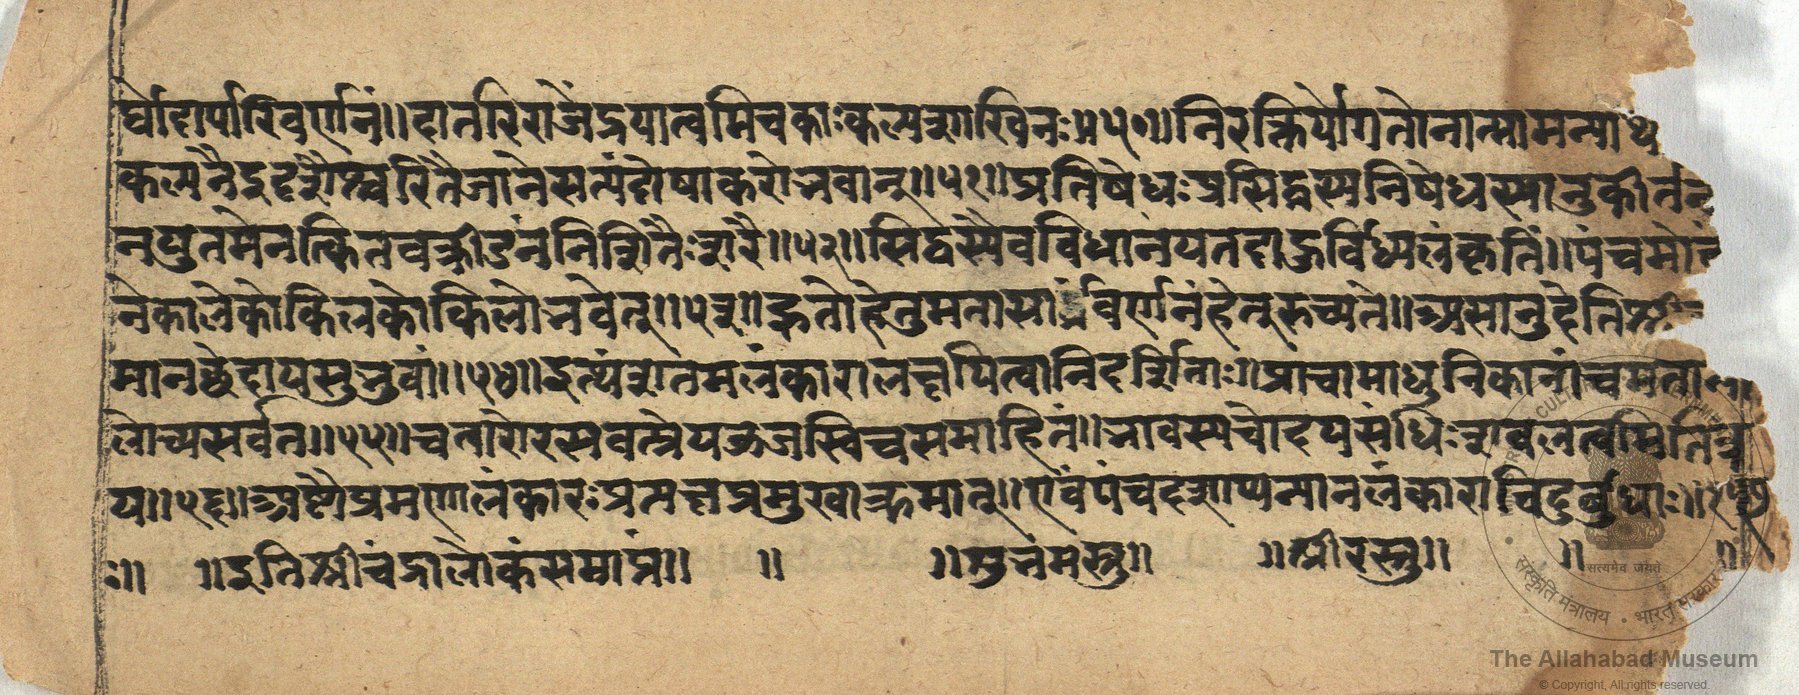 र्घौदार्यादिवर्णनं॥ दातरि राजेंद्र यात्वमिचकाः कल्पशाखिनः॥ ५१॥ निरुक्तिर्योगतोनान्मामन्मा थ
कल्पनैइदृशैश्चरितैजानेसत्यंदोषाकरोभवान्॥ ५२॥ प्रतिषेधः प्रसिद्धस्यनिषेधस्यानुकीर्तन
नद्युतमेनत्कितवक्रीडनंनिशितैः शरै॥ ५३॥ सिद्धस्यैवविधानंयतदाहुर्विध्यलंकृतिं॥ पंचमोद
नेकालेकोकिलकोकिलोभवेत्॥ ५३॥ हेतोहेतुमतासार्धंवर्णनंहेतुरुच्यते॥ असानुदेतिशी
मानछेदायसुभ्रुवां॥ ५४॥ इत्थंशतमलंकारालक्षयित्वानिदर्शिताः॥ प्राचामाधुनिकानांचमता
लोच्यसर्वत॥ ५५॥ चत्वारोरसवत्प्रेयऊर्जस्विचसमाहितं॥ भावस्यचोदयसंधिः शबलत्वमितित्र
य॥ ५६॥ अष्टौप्रमाणलंकारः प्रत्यक्षप्रमुखाःक्रमात्॥ एवंपंचदशाप्यन्यानलंकाराचिदुर्बुधाः॥ ५७
ः॥ ॥ इतिश्रीचंद्रालोकंसमाप्तं॥ ॥ ॥ शुभंमस्तु॥ ॥ श्रीरस्तु॥ ॥ ॥
सत्यमेव जयते
संस्कृति मंत्रालय • भारत सरकार
The Allahabad Museum
© Copyright, All rights reserved